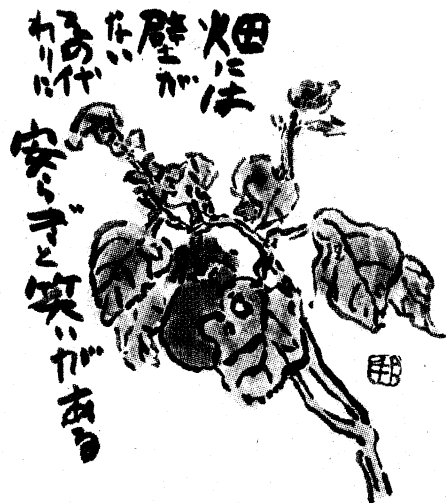 畑には
壁が
ない
その代
わりに
安らぎと笑いがある
邦